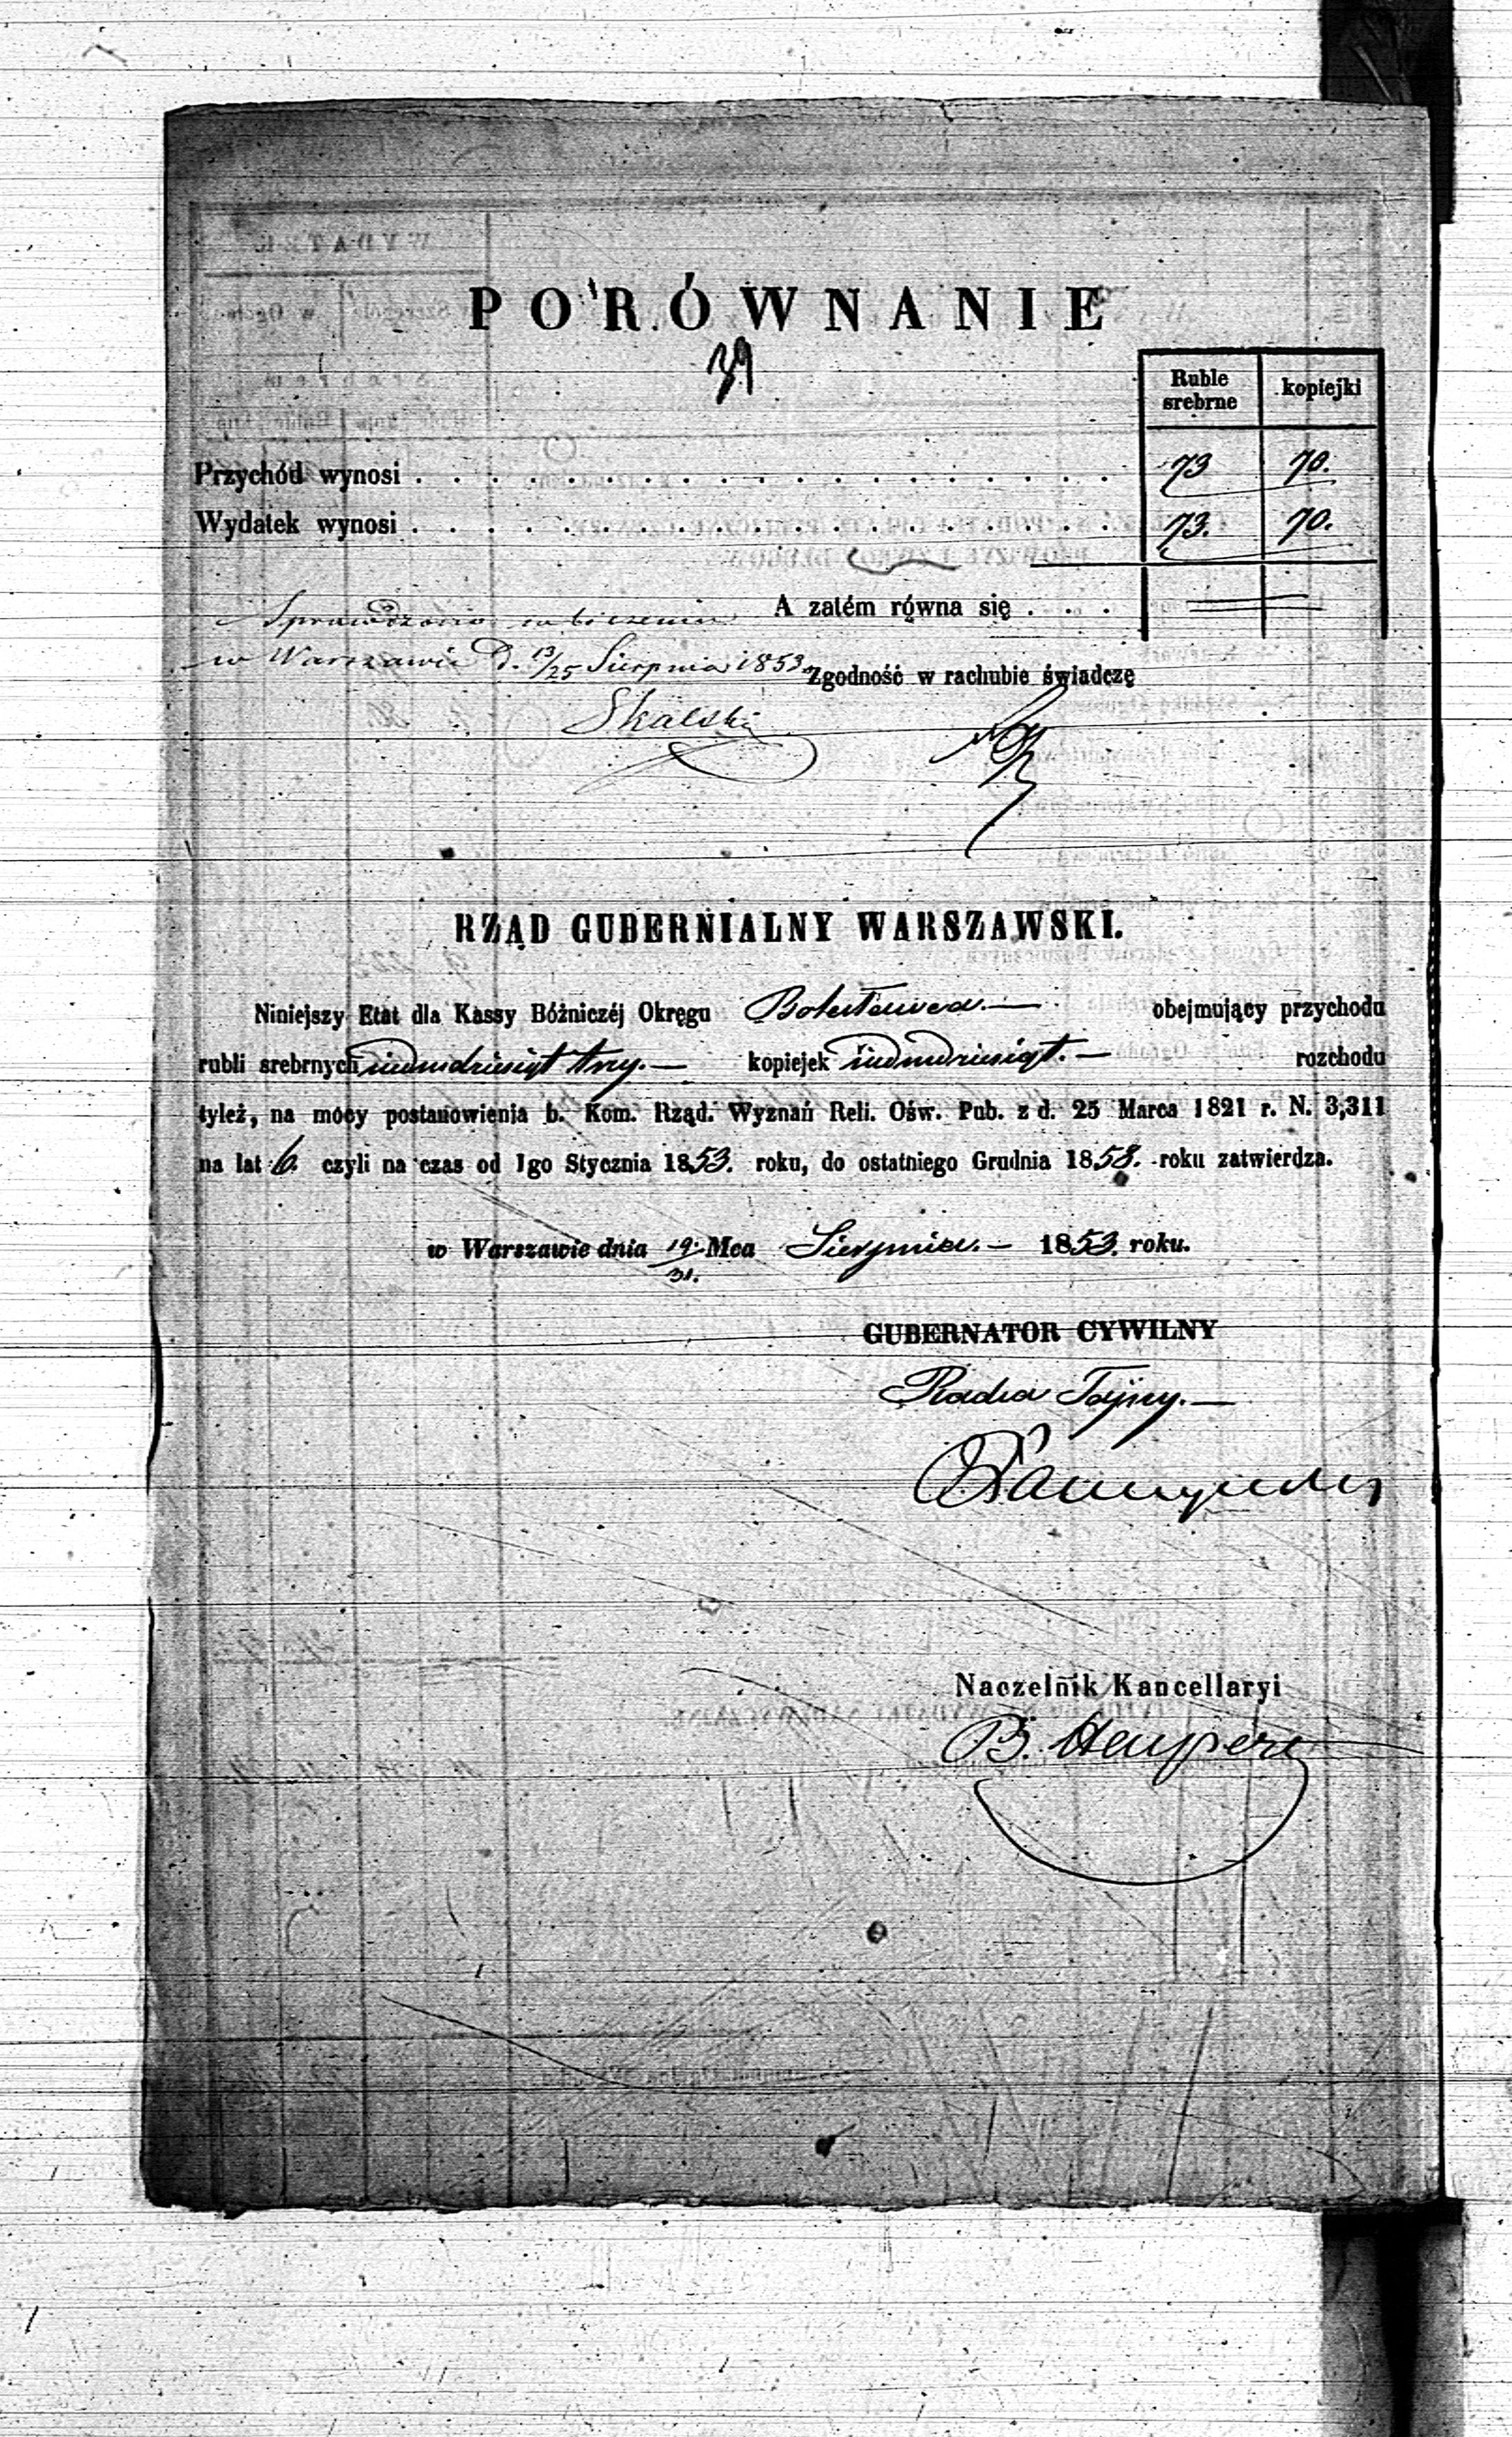 PORÓWNANIE
39
Ruble srebrne kopiejki
Przychód wynosi . . . 73 70.
Wydatek wynosi . . . 73. 70.
A zatém równa się . . .
Sprawdzono
w Warszawie D. 13/25 Sierpnia 1853
Zgodność w rachubie świadczę
Skalski
RZĄD GUBERNIALNY WARSZAWSKI.
Niniejszy Etat dla Kassy Bóżniczéj Okręgu obejmujący przychodu
rubli srebrnych siedmdziesiąt trzy.— kopiejek siedmdziesiąt.— rozchodu
tyleż, na mocy postanowienia b. Kom. Rząd. Wyznań Reli. Ośw. Pub. z d. 25 Marca 1821 r. N. 3,311
na lat 6. czyli na czas od 1go Stycznia 1853. roku, do ostatniego Grudnia 1858. roku zatwierdza.
w Warszawie dnia 19/31. Mca Sierpnia.— 1853. roku.
GUBERNATOR CYWILNY
Radca Tajny.—
Naczelnik Kancellaryi
B.